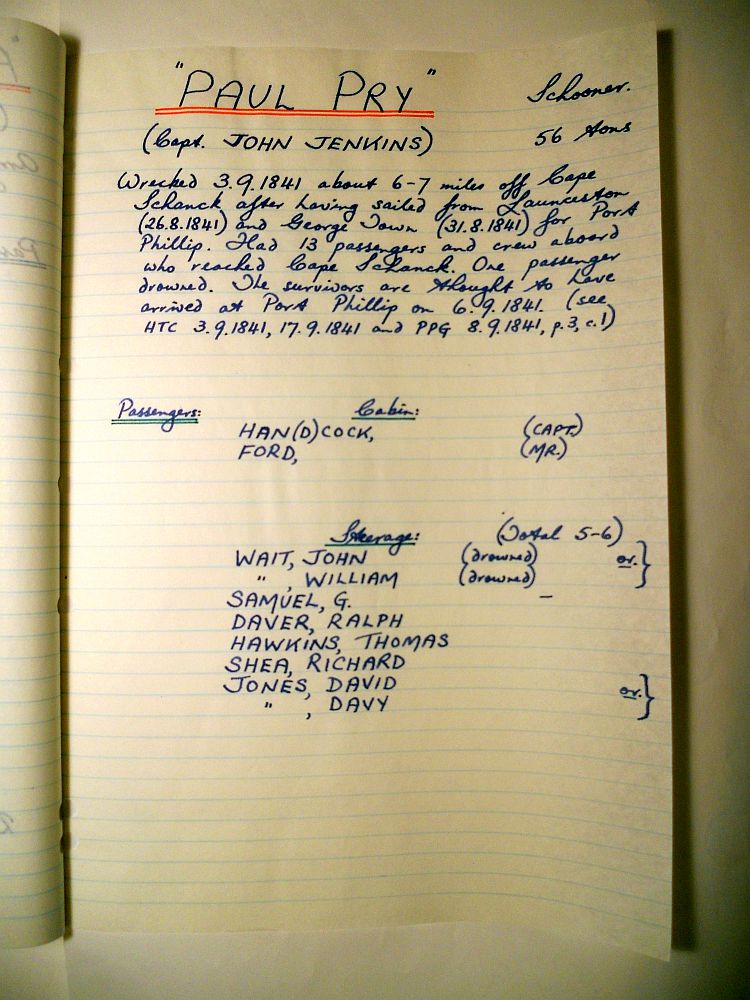 "PAUL PRY" Schooner.
(Capt. JOHN JENKINS) 56 tons
Wrecked 3.9.1841 about 6-7 miles off Cape
Schanck after having sailed from Launceston
(26.8.1841) and George Town (31.8.1841) for Port
Phillip. Had 13 passengers and crew aboard
who reached Cape Schanck. One passenger
drowned. The survivors are thought to have
arrived at Port Phillip on 6.9.1841. (see
HTC 3.9.1841, 17.9.1841 and PPG 8.9.1841, p.3, c.1)
Passengers: Cabin:
HAN(D)COCK, (CAPT.)
FORD, (MR.)
Steerage: (Total 5-6)
WAIT, JOHN (drowned) or. }
" , WILLIAM (drowned)
SAMUEL, G. –
DAVER, RALPH
HAWKINS, THOMAS
SHEA, RICHARD
JONES, DAVID or. }
" , DAVY